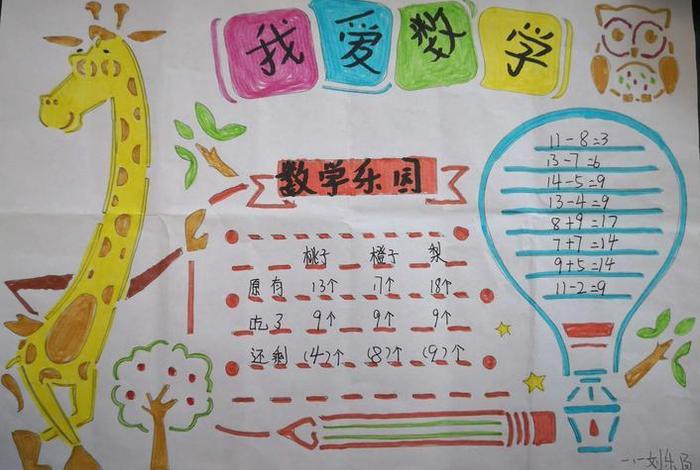 我爱数学
数学乐园
桃子 橙子 梨
原有 13个 17个 18个
吃了 9个 9个 9个
还剩 (4)个 (8)个 (9)个
11-8=3
13-7=6
14-5=9
13-4=9
8+9=17
7+7=14
9+5=14
11-2=9